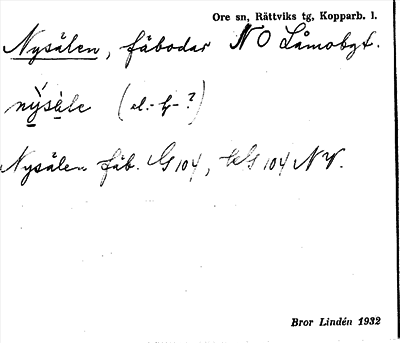 Ore sn, Rättviks tg, Kopparb. l.
Nysälen, fäbodar N O Låmobyt.
nỳsàle (el. - y - ?)
Nysälen fäb. G 104, G 104 NV.
Bror Lindén 1932